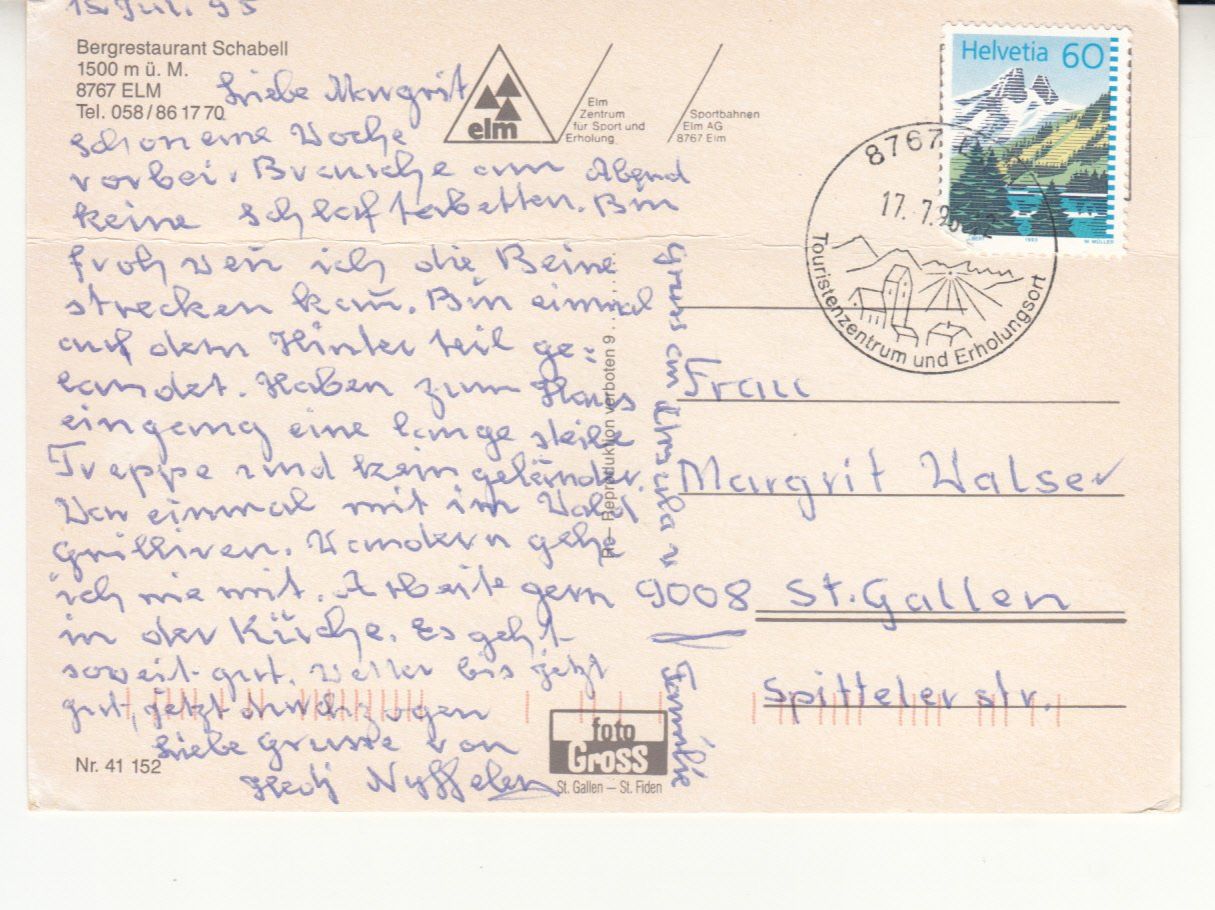 15. Jul. 95
Bergrestaurant Schabell
1500 m ü. M.
8767 ELM
Tel. 058/86 17 70
elm
Elm
Zentrum
für Sport und
Erholung
Sportbahnen
Elm AG
8767 Elm
Helvetia 60
1993
M. MÜLLER
8767
17. 7.95
Touristenzentrum und Erholungsort
Liebe Margrit
schon eine Woche
vorbei. Brauche am Abend
keine Schlaftabletten. Bin
froh wen̄ ich die Beine
strecken kan̄. Bin einmal
auf dem Hinterteil ge=
landet. Haben zum Haus
eingang eine lange steile
Treppe und kein geländer.
War einmal mit im Wald
grillieren. Wandern gehe
ich nie mit. Arbeite gern
in der Küche. Es geht
soweit gut. Wetter bis jetzt
gut, jetzt durchzogen
Liebe Grüsse von
Hedi Nyffeler
Gruss an Ursula u
Familie
Reproduktion verboten 9
Frau
Margrit Walser
9008 St. Gallen
Spittelerstr.
Nr. 41 152
foto
Gross
St. Gallen — St. Fiden